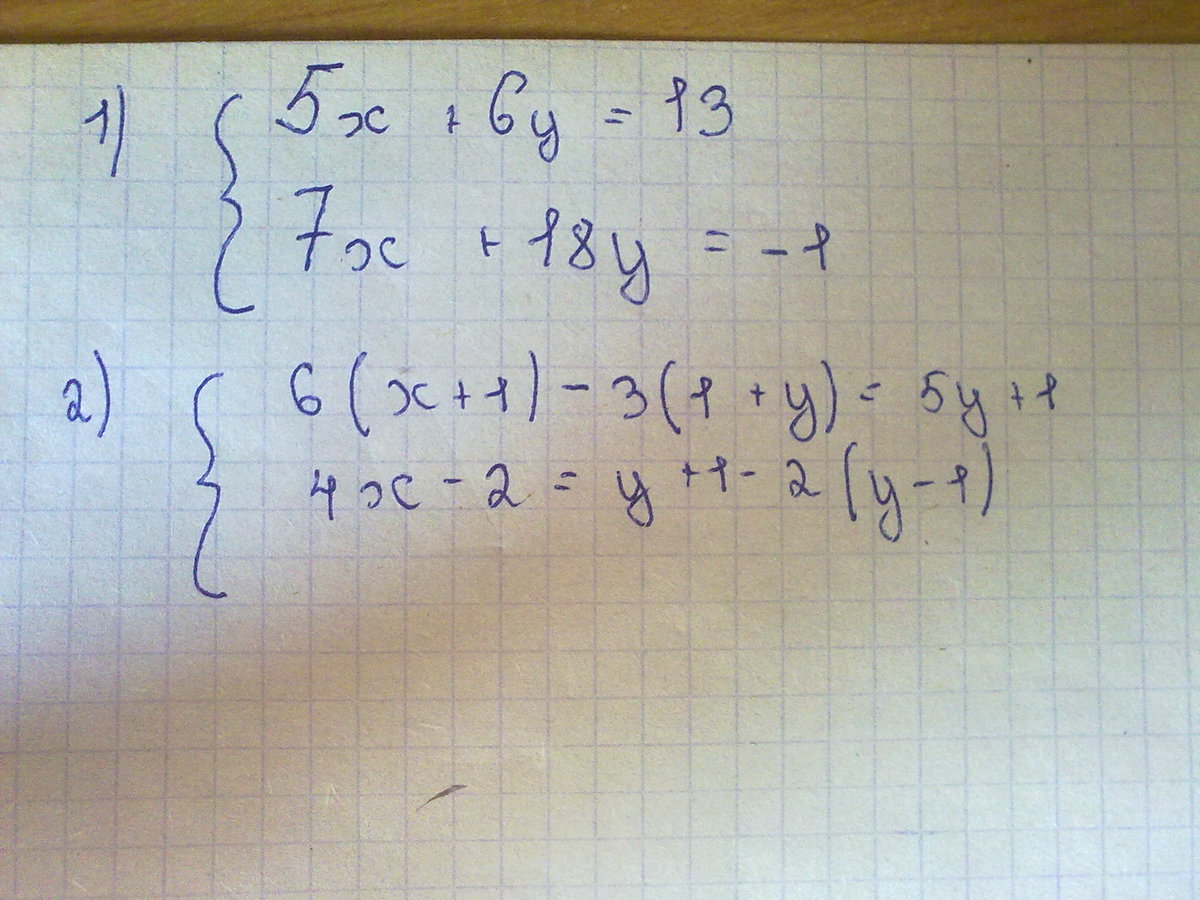 1) 5x + 6y = 13
7x + 18y = -1
2) 6(x+1) - 3(1+y) = 5y+1
4x - 2 = y + 1 - 2(y-1)